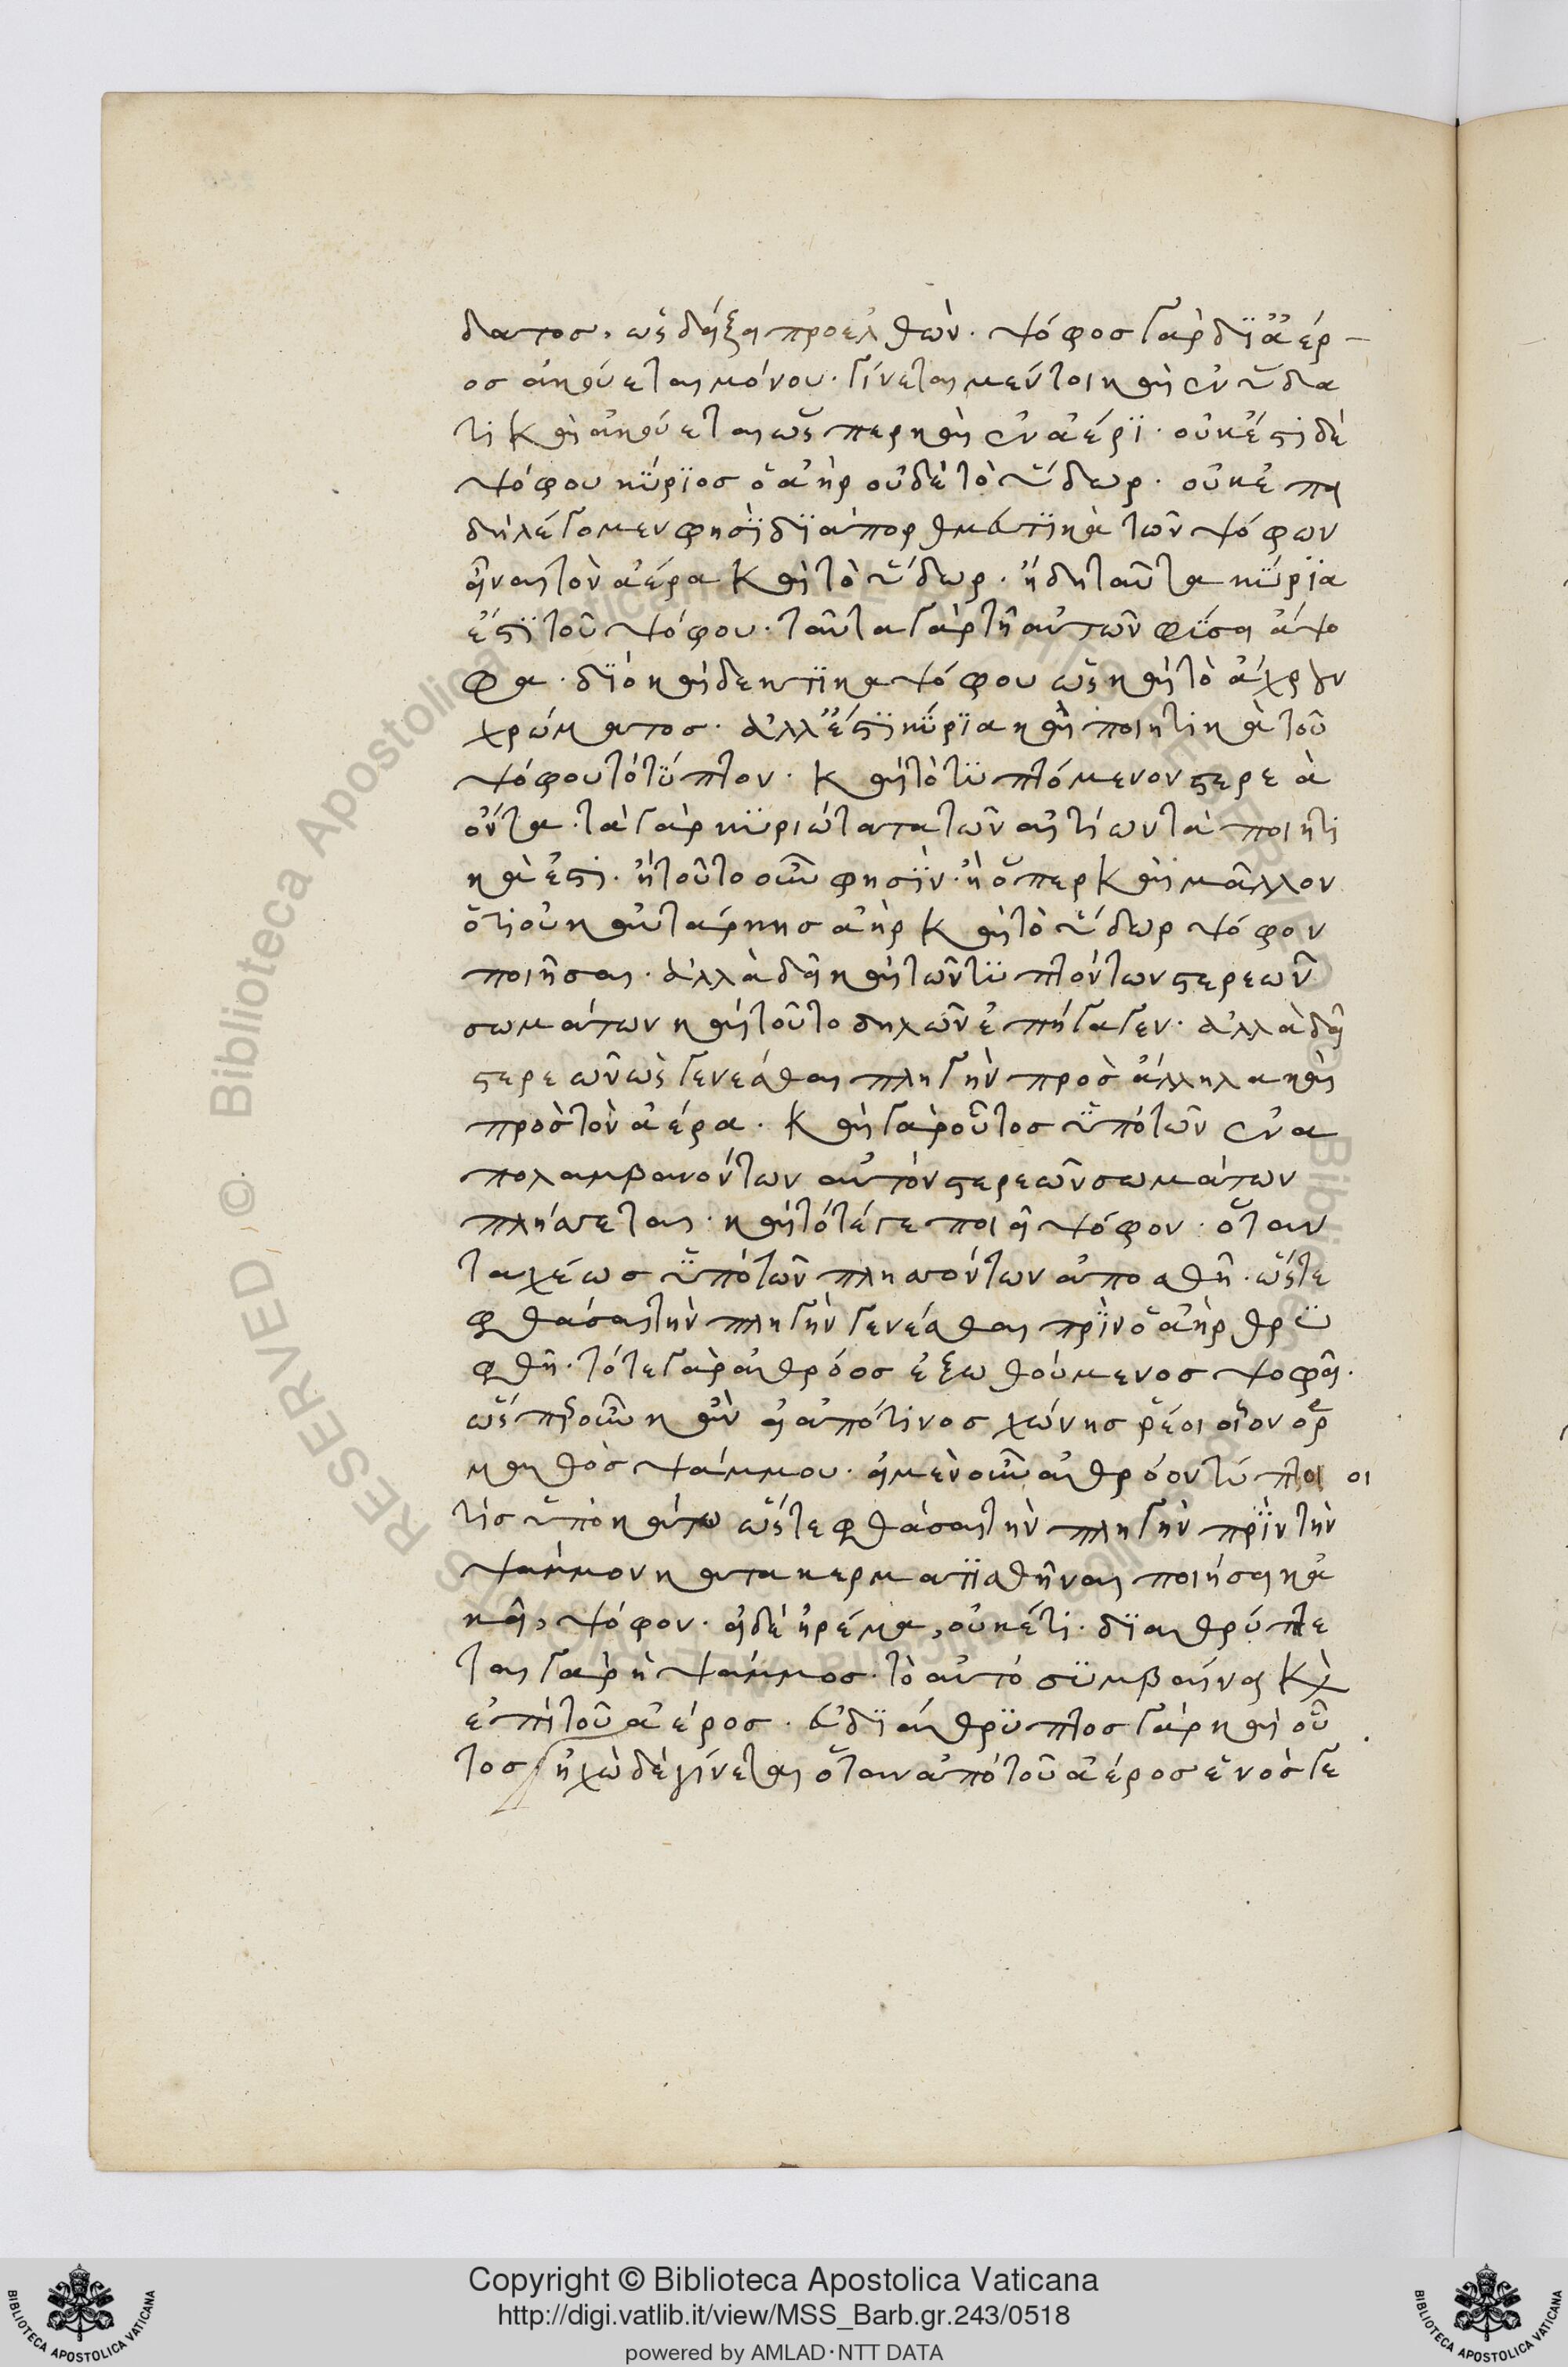 δατος, ὡς δείξει προελθών. ψόφος γὰρ δϊ' ἀέρ-
ος ἀκούεται μόνου. γίνεται μέντοι καὶ ἐν ὕδα
τι καὶ ἀκούεται ὥσπερ καὶ ἐν ἀέρϊ. οὐκ ἔστι δὲ
ψόφου κύρϊος ὁ ἀὴρ οὐδὲ τὸ ὕδωρ. οὐκ ἐπει
δὴ λέγομεν φησῒ δϊαπορθμευτϊκὰ τῶν ψόφων
εἶναι τὸν ἀέρα καὶ τὸ ὕδωρ. ἤδη ταῦτα κύρϊα
ἐστῒ τοῦ ψόφου. ταῦτα γὰρ τῇ αὐτῶν φύσει ἄψο
φα. δϊὸ καὶ δεκτϊκα ψόφου ὡς καὶ τὸ ἄχρουν
χρώματος. ἀλλ' ἔστϊ κύρϊα καὶ ποιητικὰ τοῦ
ψόφου τὸ τύπτον. καὶ τὸ τυπτόμενον στερεὰ
ὄντα. τὰ γὰρ κυριώτατα τῶν αἰτίων τὰ ποιητι
κὰ ἐστι. ἢ τοῦτο οὖν φησϊν. ἢ ὅπερ καὶ μᾶλλον
ὅτι οὐκ αὐτάρκης ἀὴρ καὶ τὸ ὕδωρ ψόφον
ποιῆσαι. ἀλλὰ δεῖ καὶ τῶν τυπτόντων στερεῶν
σωμάτων καὶ τοῦτο δηλῶν ἐπήγαγεν. ἀλλὰ δεῖ
στερεῶν ὡς γενέσθαι πληγὴν πρὸς ἄλληλα καὶ
πρὸς τὸν ἀέρα. καὶ γὰρ οὗτος ὑπὸ τῶν ἐνα
πολαμβανόντων αὐτὸν στερεῶν σωμάτων
πλήσσεται. καὶ τότέ γε ποιεῖ ψόφον. ὅταν
ταχέως ὑπὸ τῶν πλησσόντων ἀπωσθῇ. ὥστε
φθάσαι τὴν πληγὴν γενέσθαι πρῒν ὁ ἀὴρ θρυ
φθῇ. τότε γὰρ ἀθρόος ἐξωθούμενος ψοφεῖ.
ὥσπερ οὖν κἂν εἰ ἀπό τινος χώνης ῥέοι οἷον ὁρ
μαθὸς ψάμμου. εἰ μὲν οὖν ἀθρόον τύπτοι οι
τὶς ὑποκάτω ὥστε φθάσαι τὴν πληγὴν πρῒν τὴν
ψάμμον κατακερματϊσθῆναι ποιήσει κα
κεῖ, ψόφον. εἰ δὲ ἠρέμα, οὐκέτι. δϊαθρύπτε
ται γὰρ ἡ ψάμμος. τὸ αὐτὸ συμβαίνει καὶ
ἐπὶ τοῦ ἀέρος. εὐδϊάθρυπτος γὰρ καὶ οὗ
τος ἠχὼ δὲ γίνεται ὅταν ἀπὸ τοῦ ἀέρος ἑνὸς γε
Copyright © Biblioteca Apostolica Vaticana
http://digi.vatlib.it/view/MSS_Barb.gr.243/0518
powered by AMLAD·NTT DATA